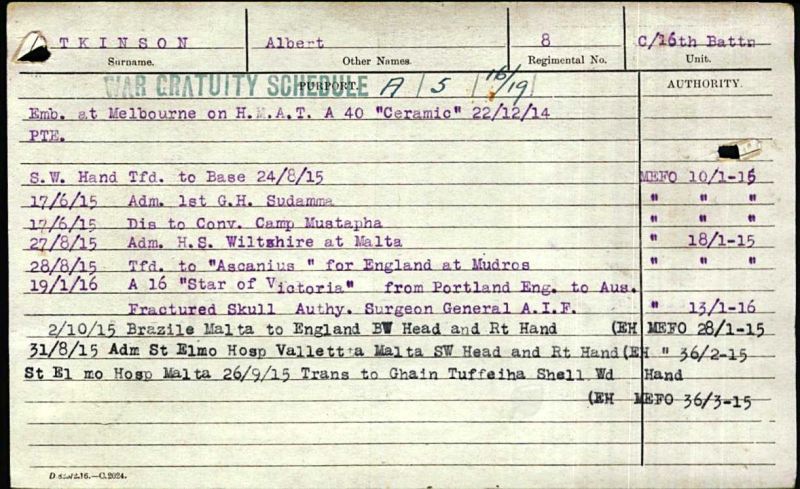 TKINSON Albert 8 C/16th Battn
Surname. Other Names. Regimental No. Unit.
WAR GRATUITY SCHEDULE PURPORT. A/5 16/19 AUTHORITY.
Emb. at Melbourne on H.M.A.T. A 40 "Ceramic" 22/12/14
PTE.
S.W. Hand Tfd. to Base 24/8/15 MEFO 10/1-15
17/6/15 Adm. 1st G.H. Sudamma " " "
17/6/15 Dis to Conv. Camp Mustapha " " "
27/8/15 Adm. H.S. Wiltshire at Malta " 18/1-15
28/8/15 Tfd. to "Ascanius " for England at Mudros " " "
19/1/16 A 16 "Star of Victoria" from Portland Eng. to Aus.
Fractured Skull Authy. Surgeon General A.I.F. " 13/1-16
2/10/15 Brazile Malta to England BW Head and Rt Hand (EH MEFO 28/1-15
31/8/15 Adm St Elmo Hosp Vallettia Malta SW Head and Rt Hand(EH " 36/2-15
St El mo Hosp Malta 26/9/15 Trans to Ghain Tuffeiha Shell Wd Hand
(EH MEFO 36/3-15
C.2024.